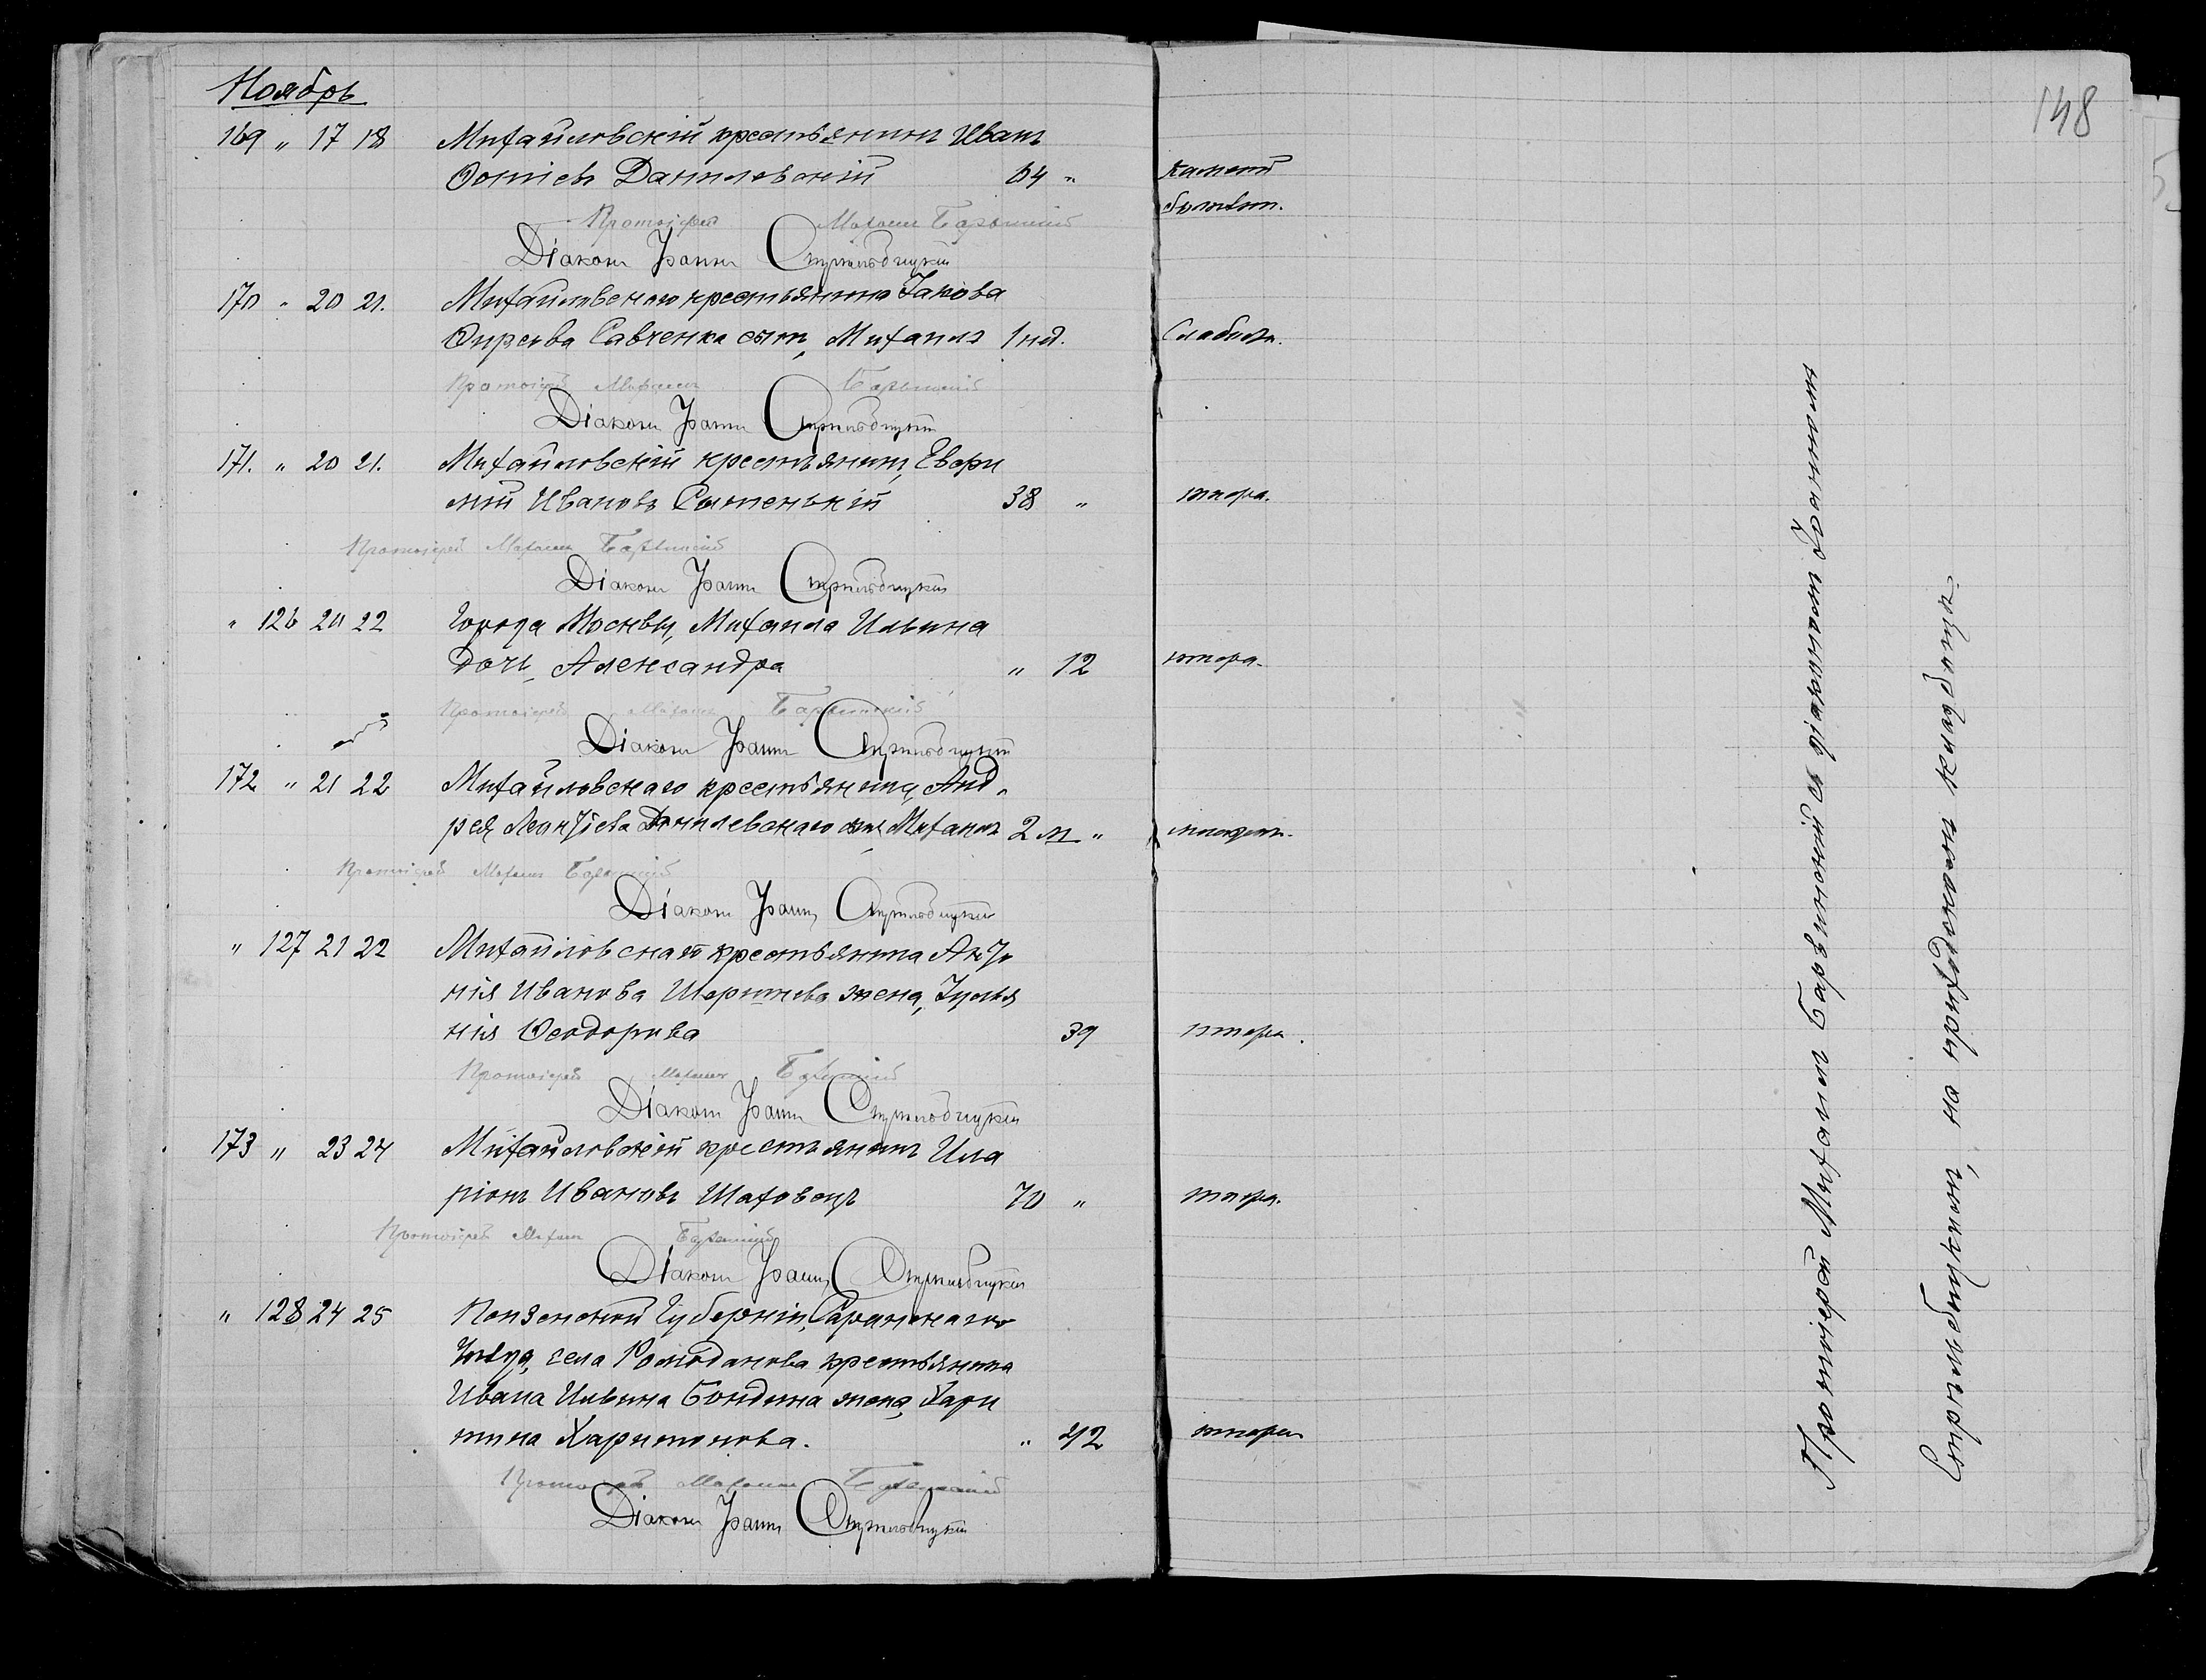 Ноябрь
148
169 „ 17 18 Михайловскій крестьянинъ Иванъ
Ѳомичъ Данилевскій 64 „ Каменн.
болѣзн.
Протоіерей Михаилъ Барвинскій
Діаконъ Іоаннъ Стрѣльбицкій
170 „ 20 21. Михайловскаго крестьянина Іакова
Савченка сынъ, Михаилъ 1 нд. Слабост.
Протоіерей Михаилъ Барвинскій
Діаконъ Іоаннъ Стрѣльбицкій
171. „ 20 21. Михайловскій крестьянинъ, Евѳи
мій Ивановъ Сытенькій 38 „ тифа.
Протоіерей Михаилъ Барвинскій
Діаконъ Іоаннъ Стрѣльбицкій
„ 126 20 22 Города Москвы, Михаила Ильина
дочь, Александра „ 12
Протоіерей Михаилъ Барвинскій
Діаконъ Іоаннъ Стрѣльбицкій
172 „ 21 22 Михайловскаго крестьянина, Анд„
рея Леонтіева Данилевскаго сынъ Михаилъ 2 м „ младен.
Протоіерей Михаилъ Барвинскій
Діаконъ Іоаннъ Стрѣльбицкій
„ 127 21 22 Михайловскаго крестьянина Анто
нія Иванова жена, Іуліа
нія Ѳеодорова 39
Протоіерей Михаилъ Барвинскій
Діаконъ Іоаннъ Стрѣльбицкій
173 „ 23 24 Михайловскій крестьянинъ Ила
ріонъ Ивановъ Шаховецъ 70 „
Протоіерей Михаилъ Барвинскій
Діаконъ Іоаннъ Стрѣльбицкій
„ 128 24 25 Пензенской Губерніи, Саранскаго
села Ромоданова крестьянина
Ивана Ильина Бондина жена, Хари
тина Харитонова. „ 42
Протоіерей Михаилъ Барвинскій
Діаконъ Іоаннъ Стрѣльбицкій
Протоіерей Михаилъ Барвинскій съ діакономъ Іоанномъ
Стрѣльбицкимъ, на приходскомъ кладбищѣ.